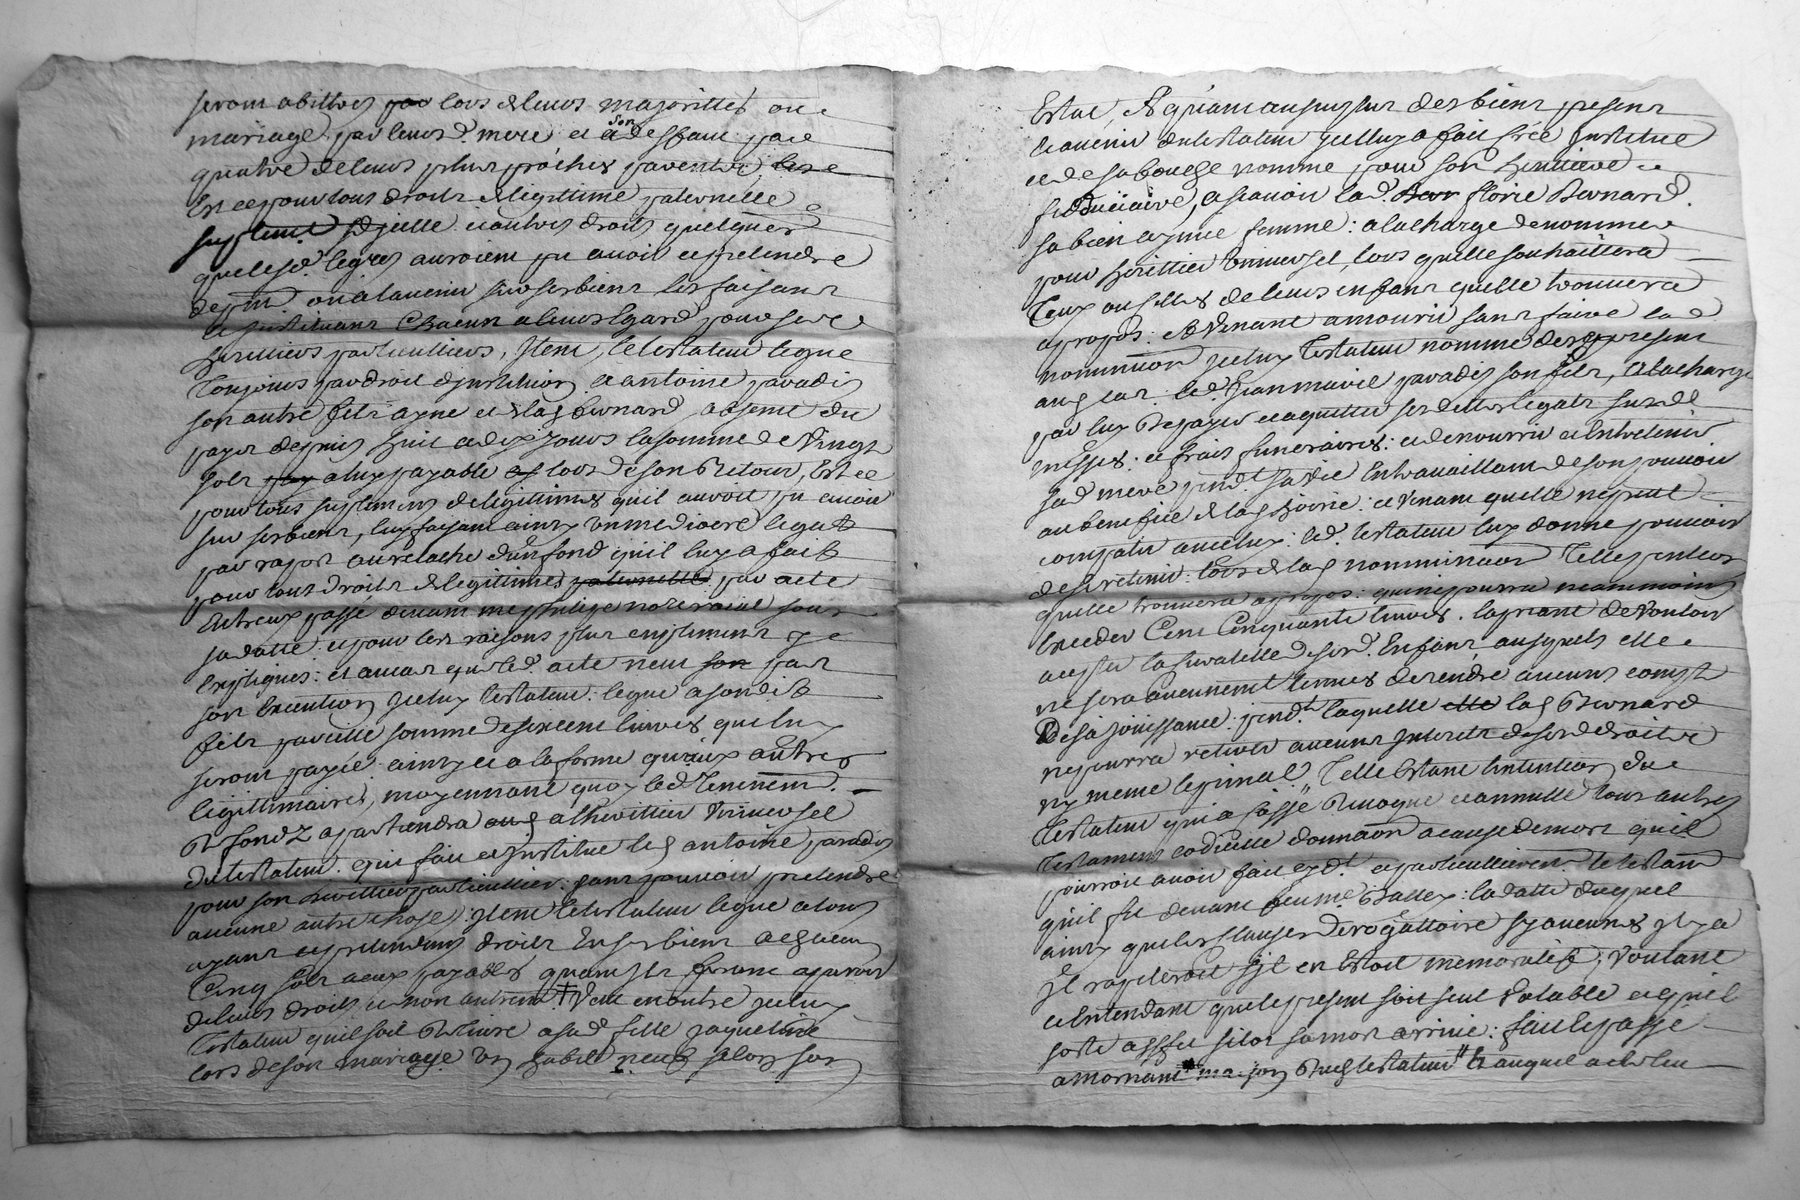 seront abilhés par lors de leurs majorittés ou
mariage par leurs d. mere et a son deffaut par
quatre de leurs plus proches parentz,
Et ce pour tous droitz de legitime paternelle
suplement d'jcelle et autres droits quelquonq
que lesd. legres auroient pu avoir et pretendre
de pnt. ou a l'avenir sur ses biens les faisant
et jnstituant Chacun a leurs Egard pour ses
heritiers particulliers, Jtem, le testateur legue
Toujours par droit d'jnstitution a antoine paradis
son autre fils ayne et de lad bernard absent du
pays depuis huit a dix jours la somme de Vingt
sols a luy payable lors de son Retour, Et ce
pour tous suplemens de legitimes quil auroit pu avoir
sur ses biens, luy faisant ainsy un mediocre legat
par raport au relache d'un fond quil luy a fait
pour tous droits de legittimes paternelle par acte
Entreux passé devant me notre royal sous
sa datte et pour les raisons plus emplement y
Expliqués: et au cas que led acte neut son par
son Execution jceluy testateur legue a sondit
fils pareille somme de six cent livres que luy
seront payée ainsy et a la forme qu'aux autres
légittimaires, moyennant quoy led. Tenement.
Et fondz apartiendra a lherittier Universel
du testateur. qui fait et jnstitue led antoine paradis
pour son herittier particullier: sans pouvoir pretendre
aucune autre chose: jtem le testateur legue a tous
ayant et pretendans droits En ses biens a chacun
Cinq sols a eux payables quant jls feront aparoir
de leurs droits et non autremt + Veut en outre jceluy
Testateur quil soit Delivré a sad. fille jaqueline
lors de son mariage un habit neuf selon son
Estat, Et quant au surplus des biens presens
et avenir du testateur jcelluy a fait créé jnstitue
et de sa bouche nomme pour son heritiere
fiduciaire, a scavoir lad. florie Bernard.
sa bien aymée femme: a la charge de nommer
pour herittier Universel, lors quelle souhaittera
Ceux ou filles de leurs enfans quelle trouvera
apropos: Et Venant a mourir sans faire lad
nomination jceluy Testateur nomme des apresent
aud cas: led. jean marie paradis son fils, a la charge
par luy De payer et aquitter ses dettes legats sus d.
messes: et frais funeraires: et de nourrir et Entretenir
sad mere pendt sa vie En travaillant de son pouvoir
au benefice de lad hoirie: et Venant quelle ne peut
compatir avec luy: led. testateur luy donne pouvoir
de se retenir: lors de lad nomination Telle pention
quelle trouvera apropos: qui ne pourra neanmoins
Exceder Cent Cinquante livres. la priant de Vouloir
accepter la de sesd. Enfans ausquels elle
ne sera aucunement tenues de rendre aucuns compt
De sa jouissance: pendt. laquelle lad Bernard
ne pourra retirer aucuns jnterets de sesd droits
ny meme le prinal. Telle Estant lintention du
testateur qui a Cassé Revoque et annulle tous autres
testament codicille donnaon a cause de mort quil
pourroit avoir fait cy dt. et particullierem. le testam
quil fit devant feu me. : la datte duquel
ainsy que les clauses derogattoire sy aucunes jl y a
jl raporteroit sjl en Estoit memoratif; Voulant
et Entendant que le present soit seul Valable et quil
sorte effect sitot sa mort arrivée: fait et passé
a mornant maison dud testateur auquel a